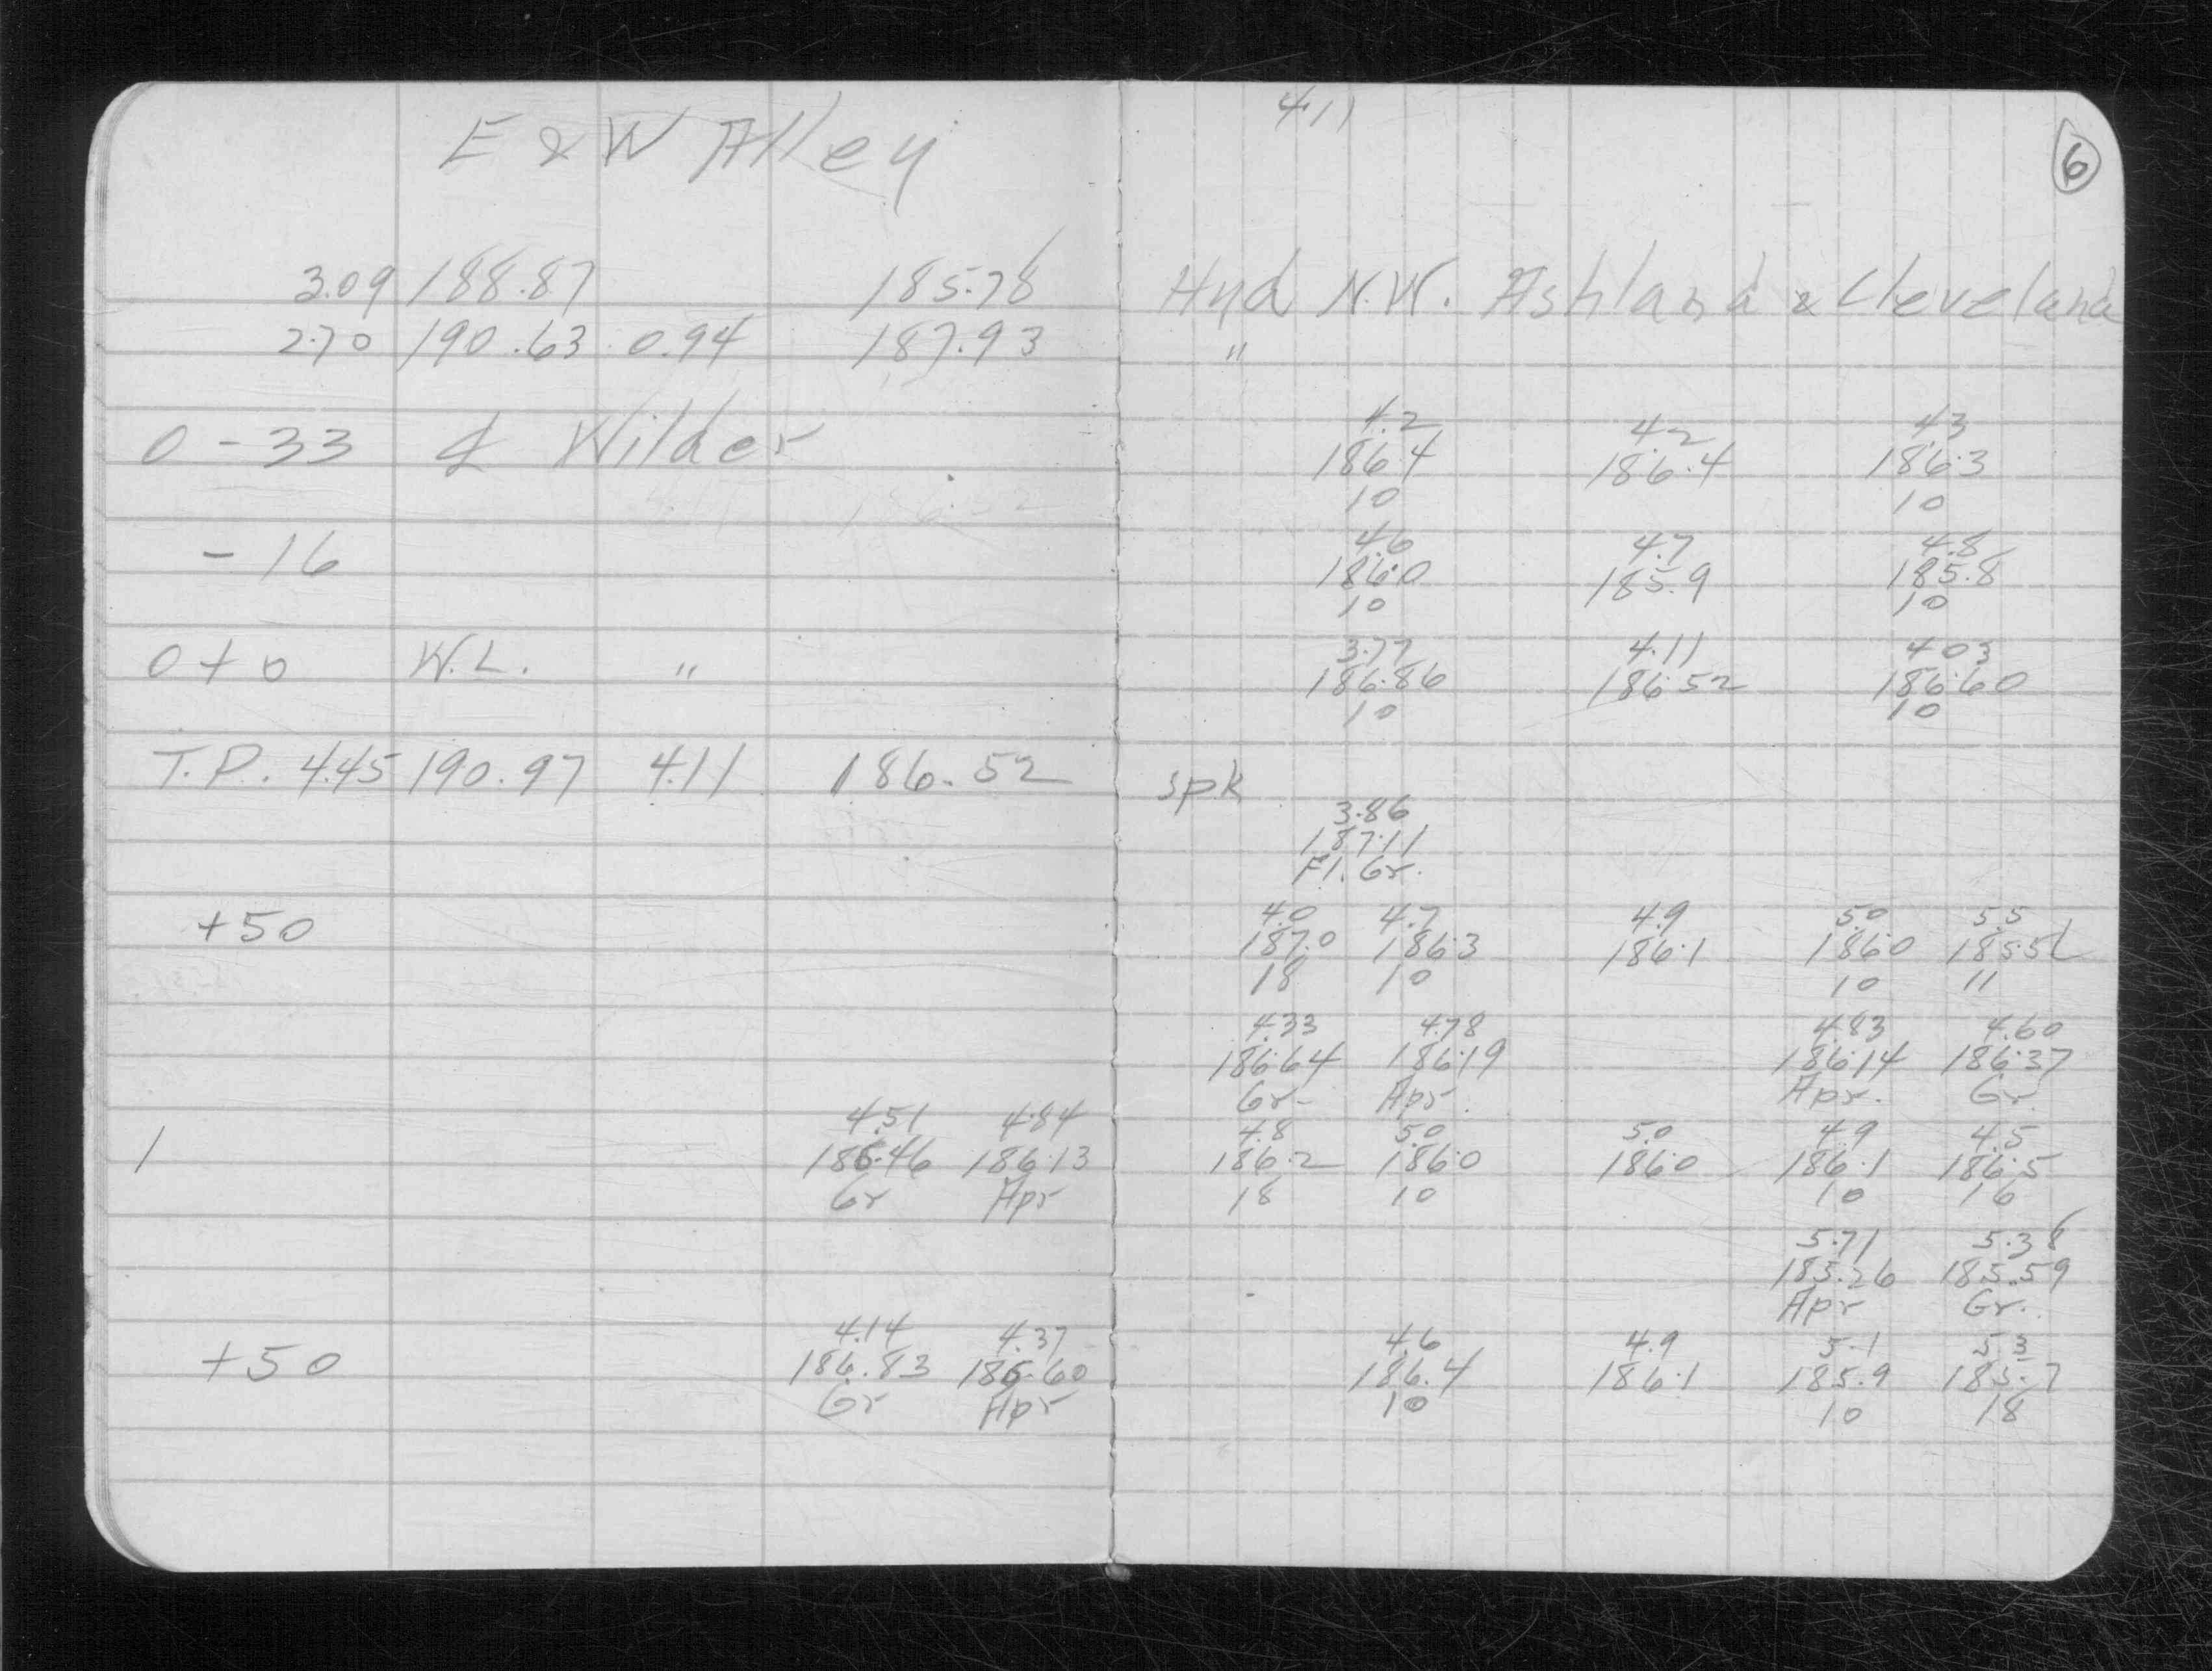 E & W Alley
411
6
3.09 188.87 185.78 Hyd N.W. Ashland & Cleveland
2.70 190.63 0.94 187.93 "
4.2 4.2 4.3
0 - 33 ℄ Wilder 186.4 186.4 186.3
10 10
4.6 4.7 4.8
- 16 186.0 185.9 185.8
10 10
3.77 4.11 4.03
0+0 W.L. " 186.86 186.52 186.60
10 10
T.P. 4.45 190.97 4.11 186.52 spk
3.86
187.11
Fl. Gr.
4.0 4.7 4.9 5.0 5.5
+50 187.0 186.3 186.1 186.0 185.5
18 10 10 11
4.33 4.78 4.83 4.60
186.64 186.19 186.14 186.37
Gr. Apr. Apr. Gr.
4.51 4.84 4.8 5.0 5.0 4.9 4.5
1 186.46 186.13 186.2 186.0 186.0 186.1 186.5
Gr Apr 18 10 10 16
5.71 5.38
185.26 185.59
Apr Gr.
4.14 4.37 4.6 4.9 5.1 5.3
+50 186.83 186.60 186.4 186.1 185.9 185.7
Gr Apr 10 10 18